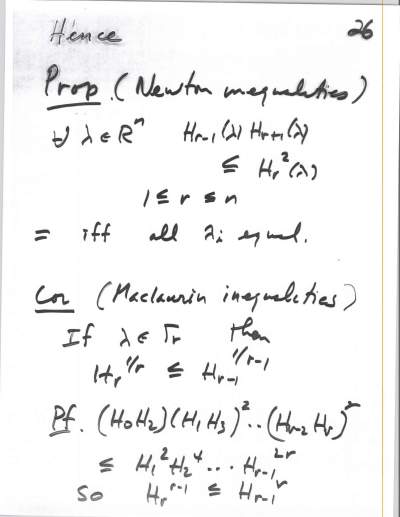 Hence 26
Prop. (Newton inequalities)
∀ λ ∈ Rⁿ H_{r-1}(λ) H_{r+1}(λ)
≤ H_r²(λ)
1 ≤ r ≤ n
= iff all λ_i equal.
Cor (Maclaurin inequalities)
If λ ∈ Γ_r then
H_r^{1/r} ≤ H_{r-1}^{1/r-1}
Pf. (H_0H_2)(H_1H_3)²..(H_{r-2}H_r)^r
≤ H_1²H_2⁴... H_{r-1}^{2r}
so H_r^{r-1} ≤ H_{r-1}^r